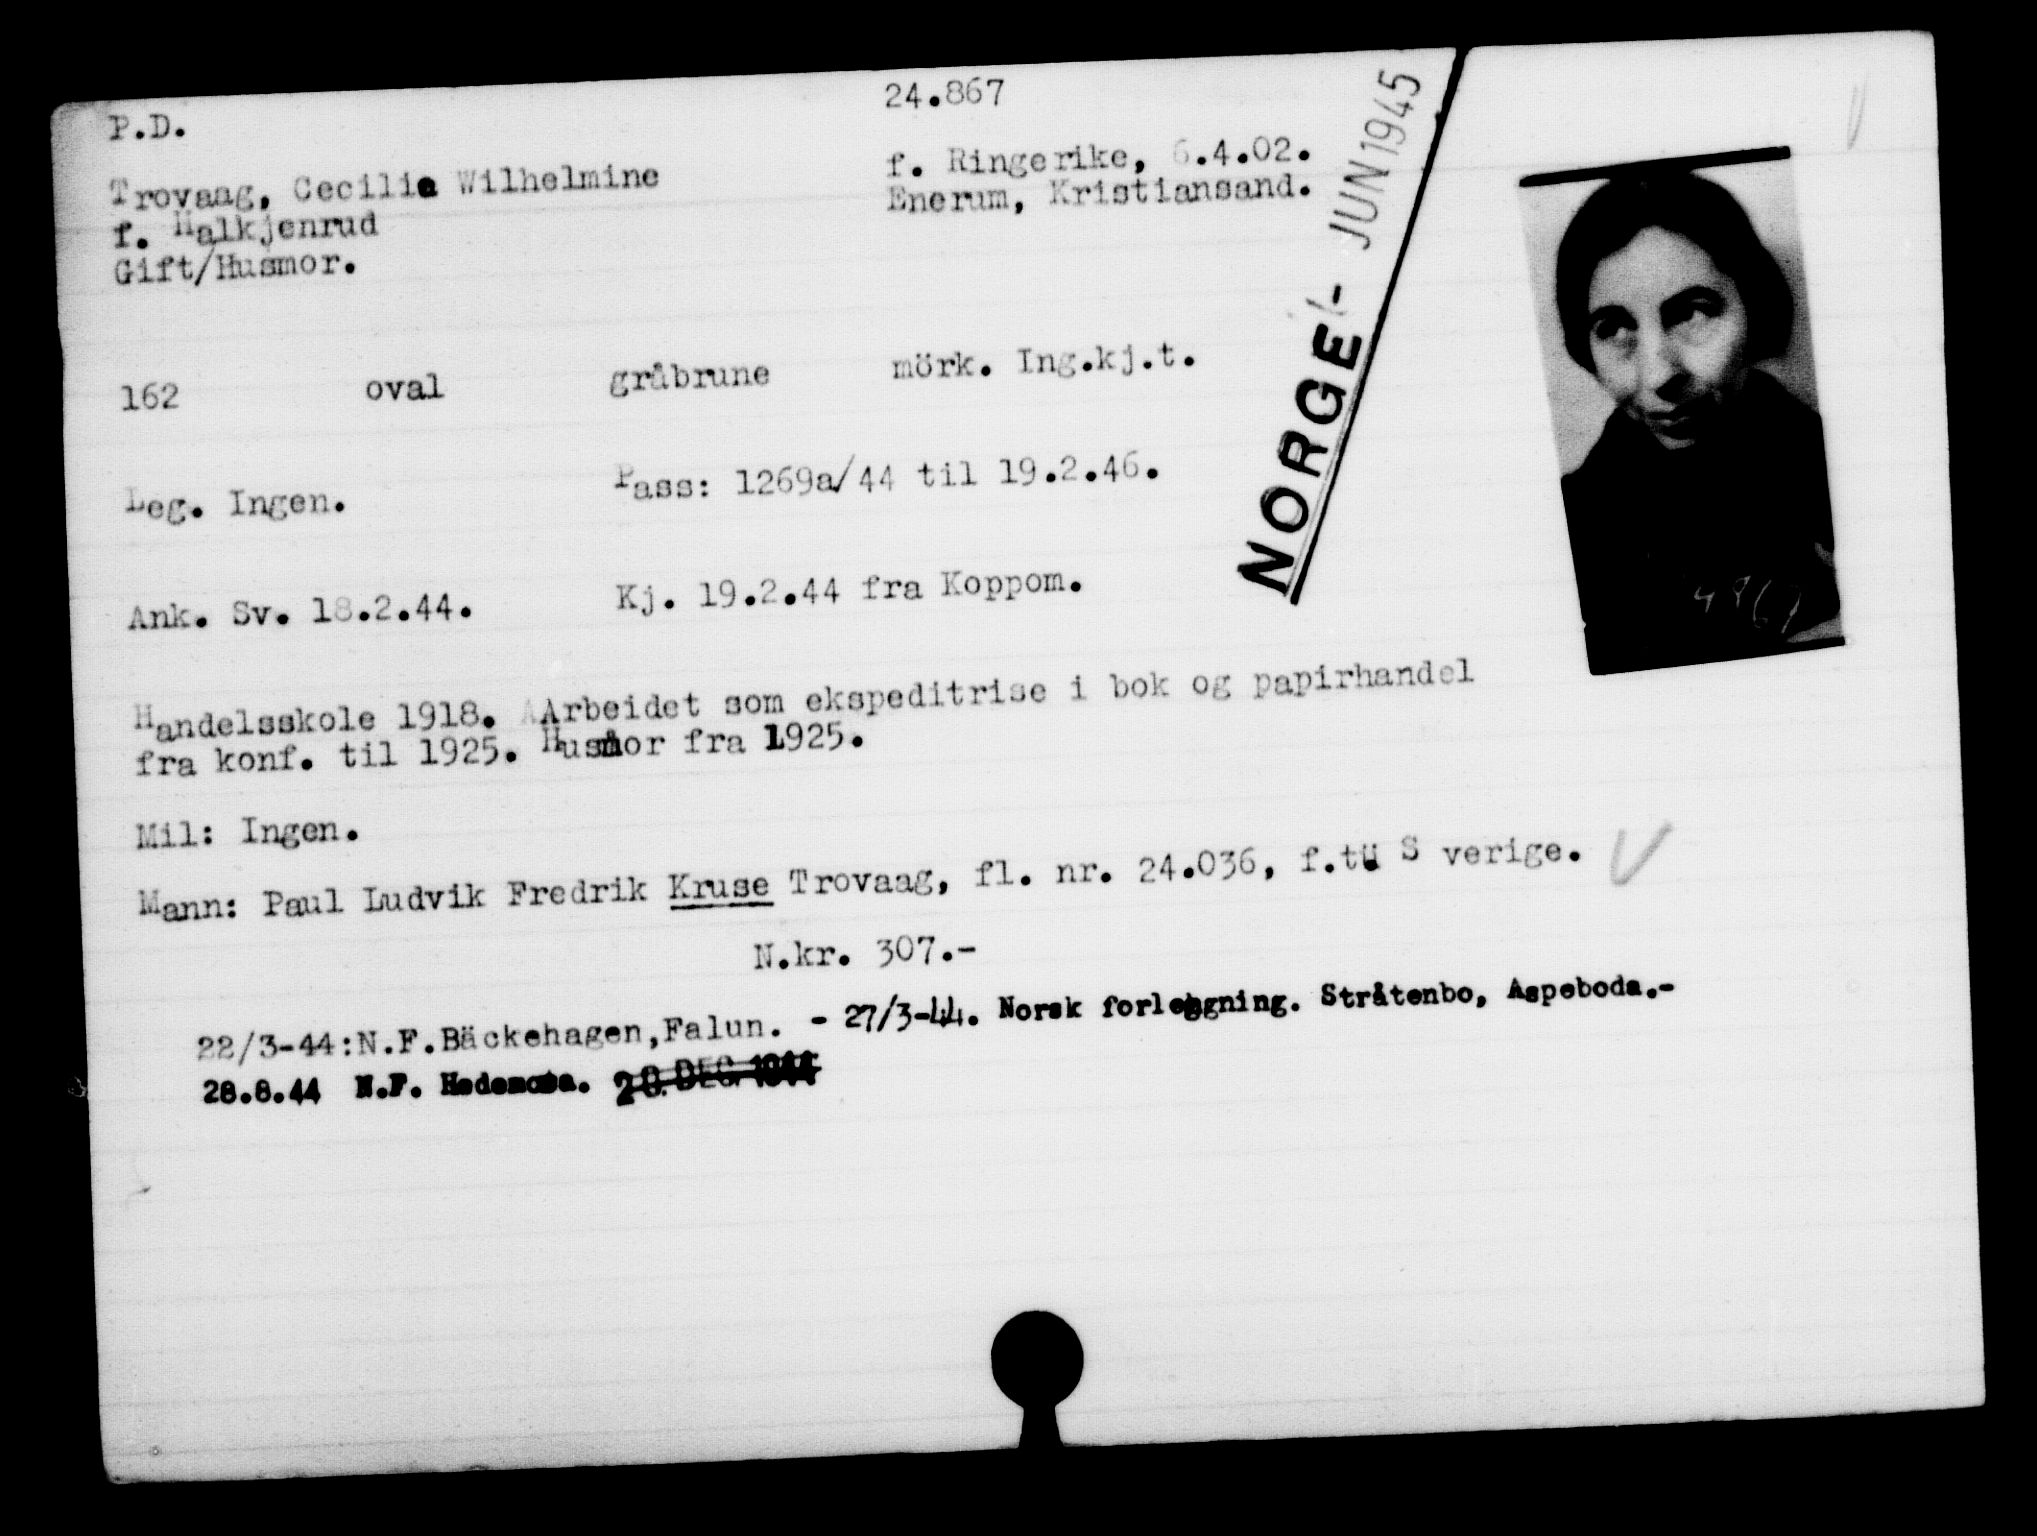 24.867
P.D.
Trovaag, Cecilie Wilhelmine
f. Ringerike, 6.4.02.
f. Halkjenrud
Enerum, Kristiansand.
Gift/Husmor.
NORGE - JUN 1945
162 oval gråbrune mörk. Ing.kj.t.
Leg. Ingen. Pass: 1269a/44 til 19.2.46.
Ank. Sv. 18.2.44. Kj. 19.2.44 fra Koppom.
Handelsskole 1918. Arbeidet som ekspeditrise i bok og papirhandel
fra konf. til 1925. Husmor fra 1925.
Mil: Ingen.
Mann: Paul Ludvik Fredrik Kruse Trovaag, fl. nr. 24.036, f.t. S verige.
N.kr. 307.-
22/3-44:N.F.Bäckehagen,Falun. - 27/3-44. Norsk forlegning. Stråtenbo, Aspeboda.-
28.8.44 N.F. Hedemora. 20. DEC. 1944